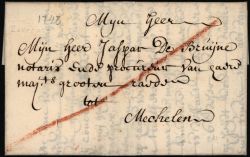 1748
Myn Heer
Mijn Heer Jaspar De Bruijne
notaris Ende procureur van haere
majts grooten raedde
tot
Mechelen